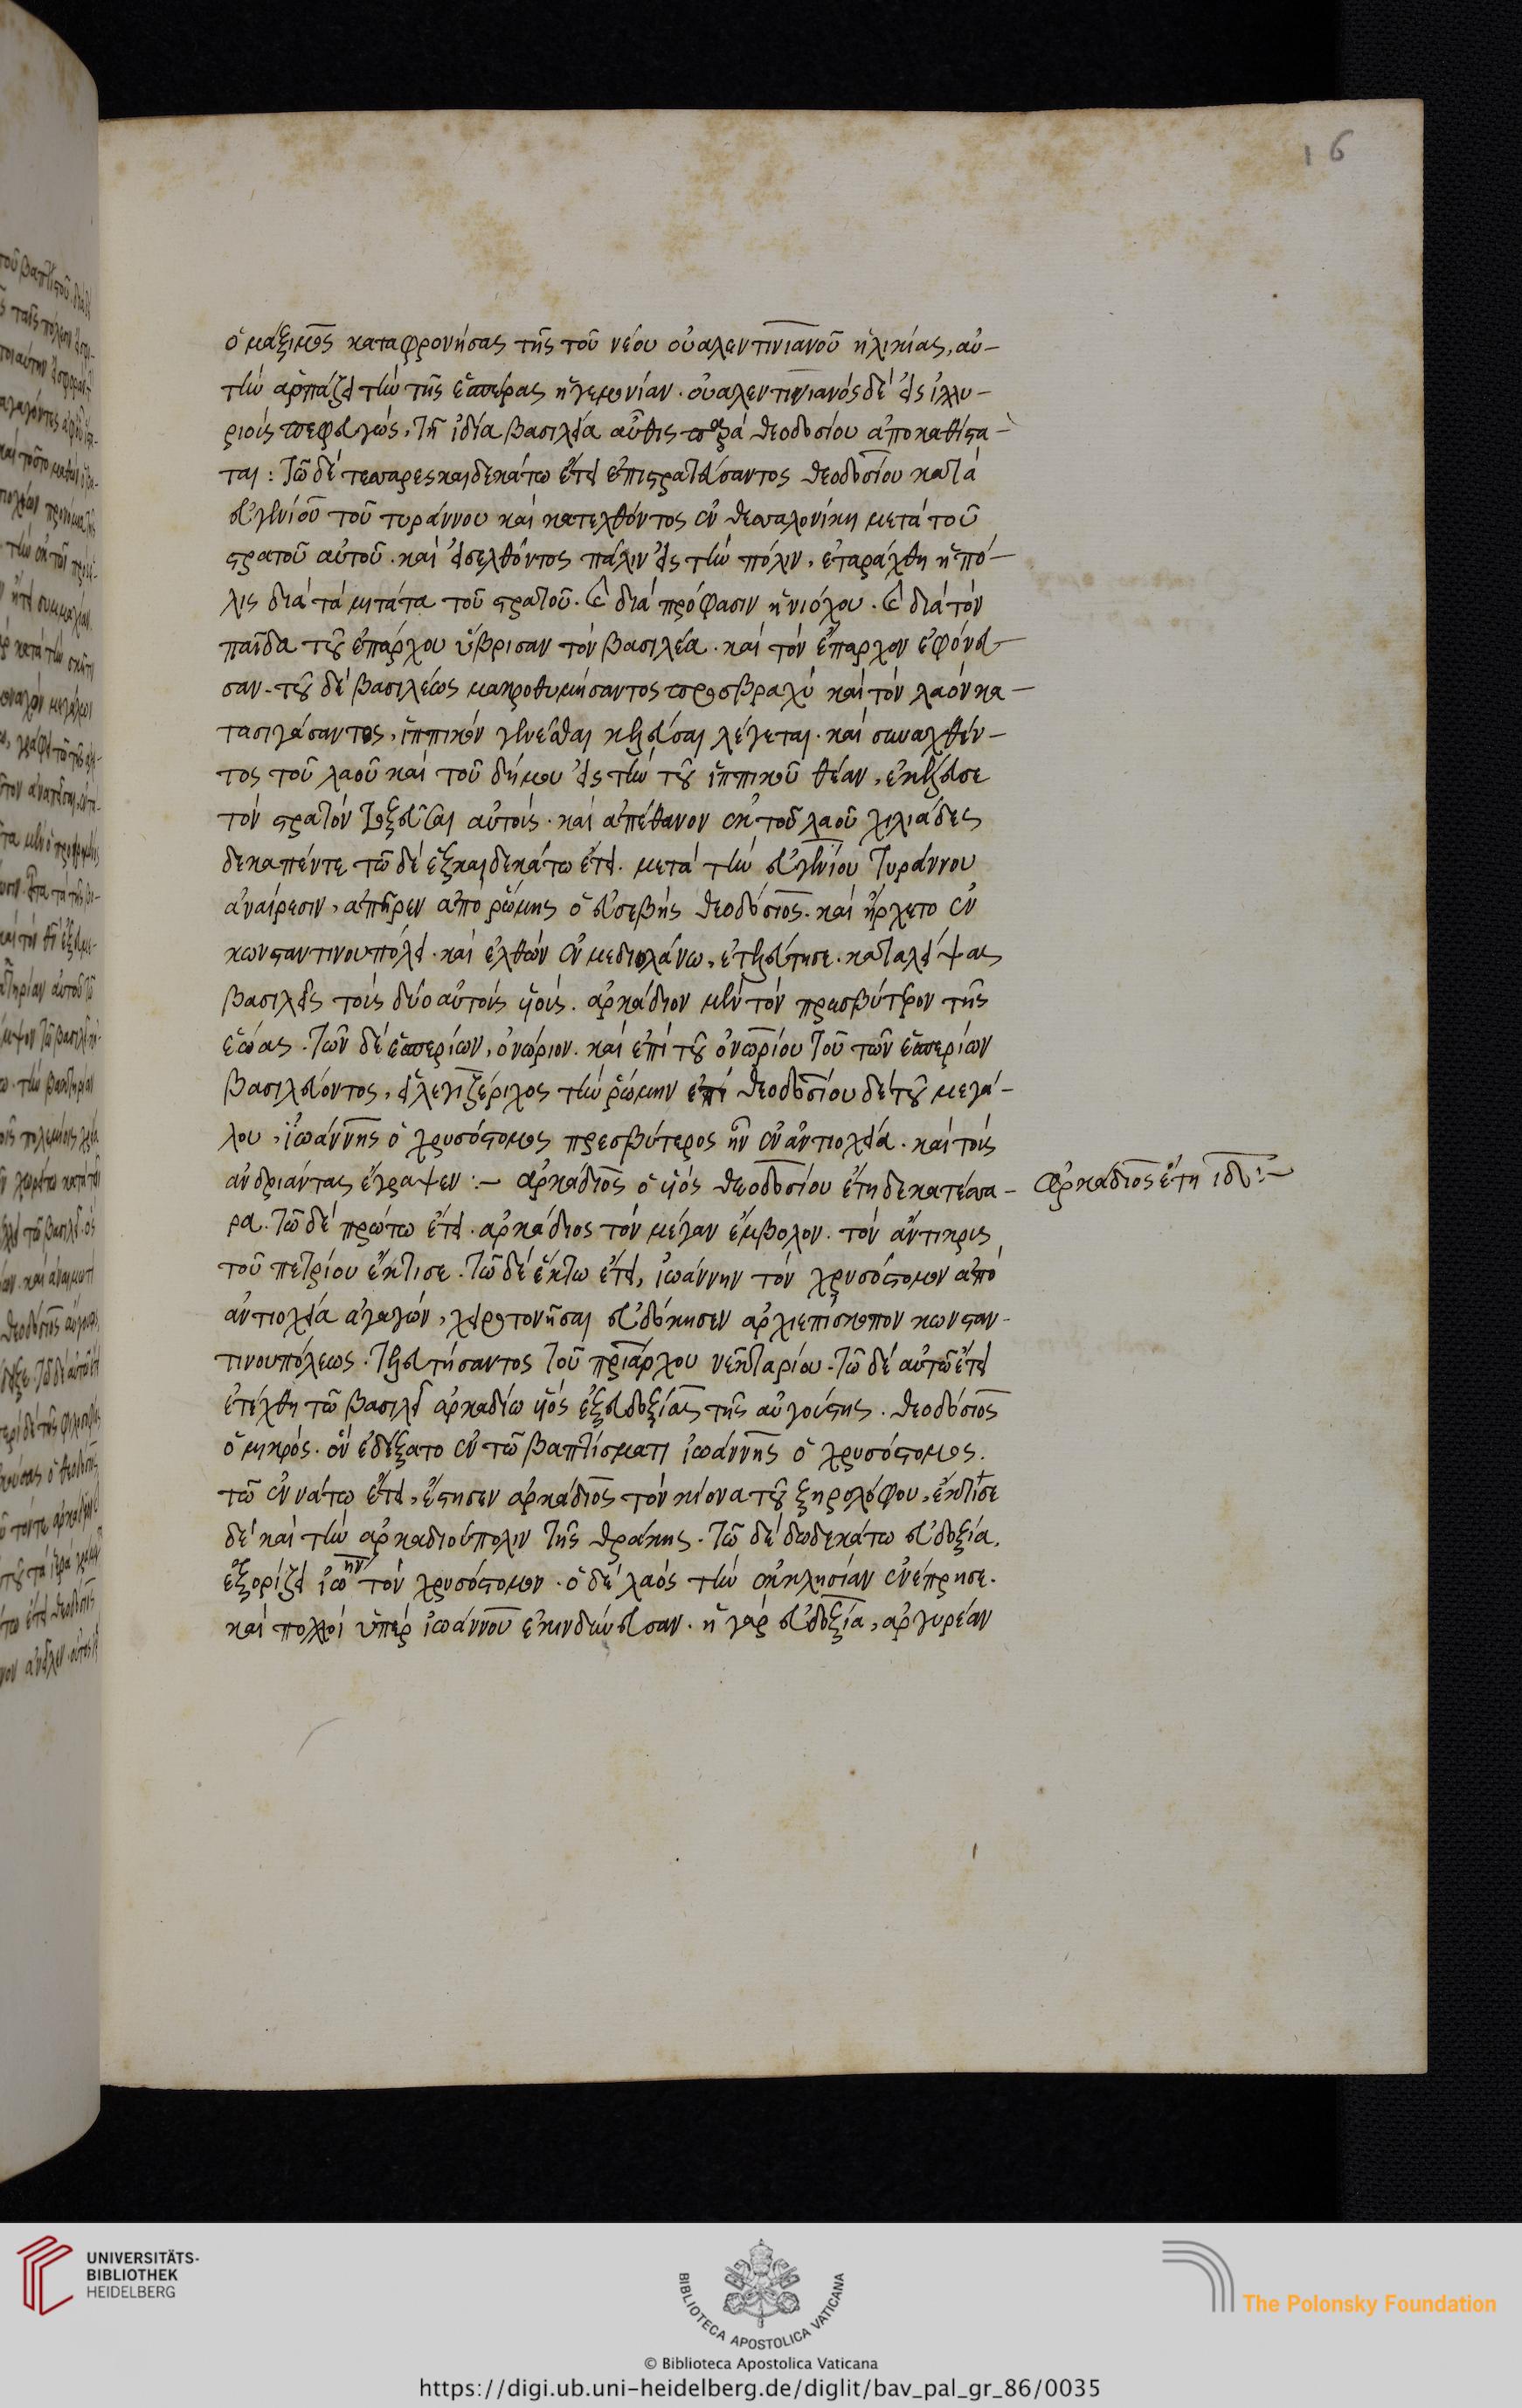 16
ὁ μάξιμος καταφρονήσας τῆς τοῦ νέου οὐαλεντινιανοῦ ἡλικίας, αὐ-
τὴν ἁρπάζει τὴν τῆς ἑσπέρας ἡγεμονίαν. οὐαλεντινιανός δέ εἰς ἰλλυ-
ριούς πεφευγώς, τῇ ἰδία βασιλεία αὖθις παρά θεοδοσίου ἀποκαθίστα-
ται: τῶ δέ τεσσαρεσκαιδεκάτω ἔτει ἐπιστρατεύσαντος θεοδοσίου κατά
εὐγενίου τοῦ τυράννου καί κατελθόντος ἐν θεσσαλονίκη μετά τοῦ
στρατοῦ αὐτοῦ. καί εἰσελθόντος πάλιν εἰς τὴν πόλιν, ἐταράχθη ἡ πό-
λις διά τά μιτάτα τοῦ στρατοῦ. καὶ διά πρόφασιν ἡνιόχου. καὶ διά τόν
παῖδα τοῦ ἐπάρχου ὕβρισαν τόν βασιλέα. καί τόν ἔπαρχον ἐφόνευ-
σαν. τοῦ δέ βασιλέως μακροθυμήσαντος προσβραχύ καί τόν λαόν κα-
τασιγάσαντος, ἱππικόν γενέσθαι κελεῦσαι λέγεται. καί συναχθέν-
τος τοῦ λαοῦ καί τοῦ δήμου εἰς τὴν τοῦ ἱππικοῦ θέαν, ἐκέλευσε
τόν στρατόν τοξεῦσαι αὐτούς. καί ἀπέθανον ἐκ τοῦ λαοῦ χιλιάδες
δεκαπέντε τῶ δέ ἑξκαιδεκάτω ἔτει. μετά τὴν εὐγενίου τυράννου
ἀναίρεσιν, ἀπῆρεν ἀπό ρώμης ὁ εὐσεβής θεοδόσιος. καί ἤρχετο ἐν
κωνσταντινουπόλει. καί ἐλθών ἐν μεδιολάνω, ἐτελεύτησε. καταλείψας
βασιλεῖς τούς δύο αὐτοῦ υἱούς. ἀρκάδιον μέν τόν πρεσβύτερον τῆς
ἑώας. τῶν δέ ἑσπερίων, ὁνώριον. καί ἐπί τοῦ ὁνωρίου τοῦ τῶν ἑσπερίων
βασιλεύοντος, εἷλε γιζέριχος τὴν ῥώμην ἐπί θεοδοσίου δέ τοῦ μεγά-
λου, ἰωάννης ὁ χρυσόστομος πρεσβύτερος ἦν ἐν ἀντιοχεία. καί τούς
ἀνδριάντας ἔγραψεν:- ἀρκάδιος ὁ υἱός θεοδοσίου ἔτη δεκατέσσα-
ἀρκάδιος ἔτη ιδ:-
ρα. τῶ δέ πρώτω ἔτει. ἀρκάδιος τόν μέγαν ἔμβολον. τόν ἄντικρυς
τοῦ πετρίου ἔκτισε. τῶ δέ ἕκτω ἔτει, ἰωάννην τόν χρυσόστομον ἀπό
ἀντιοχεία ἀγαγών, χειροτονῆσαι εὐδόκησεν ἀρχιεπίσκοπον κωνσταν-
τινουπόλεως. τελευτήσαντος τοῦ πατριάρχου νεκταρίου. τῶ δέ αὐτῶ ἔτει
ἐτέχθη τῶ βασιλεῖ ἀρκαδίω υἱός ἐξ εὐδοξίας τῆς αὐγούστης. θεοδόσιος
ὁ μικρός. ὅν ἐδέξατο ἐν τῶ βαπτίσματι ἰωάννης ὁ χρυσόστομος.
τῶ ἐννάτω ἔτει, ἔστησεν ἀρκάδιος τόν κίονα τοῦ ξηρολόφου, ἔκτισε
δέ καί τὴν ἀρκαδιούπολιν τῆς θράκης. τῶ δέ δωδεκάτω εὐδοξία,
ἐξορίζει ἰωην τόν χρυσόστομον. ὁ δέ λαός τὴν ἐκκλησίαν ἐνέπρησε.
καί πολλοί ὑπέρ ἰωάννου ἐκινδύνευσαν. ἡ γάρ εὐδοξία, ἀργυρέαν
UNIVERSITÄTS-
BIBLIOTHEK
HEIDELBERG
BIBLIOTECA APOSTOLICA VATICANA
The Polonsky Foundation
© Biblioteca Apostolica Vaticana
https://digi.ub.uni-heidelberg.de/diglit/bav_pal_gr_86/0035